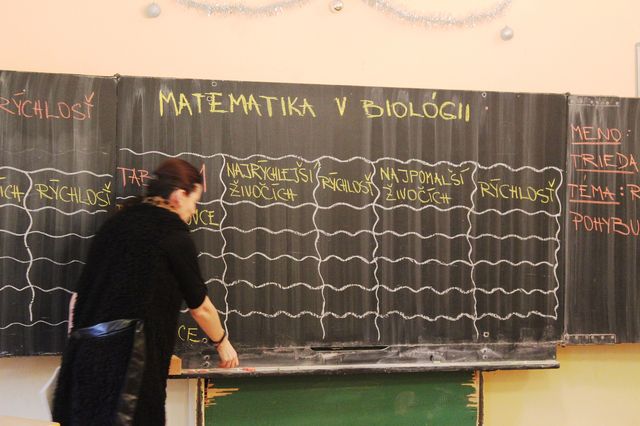 RÝCHLOSŤ
MATEMATIKA V BIOLÓGII
RÝCHLOSŤ
NAJRÝCHLEJŠÍ
ŽIVOČÍCH
RÝCHLOSŤ
NAJPOMALŠÍ
ŽIVOČÍCH
RÝCHLOSŤ
MENO:
TRIEDA
TÉMA:
POHYBU